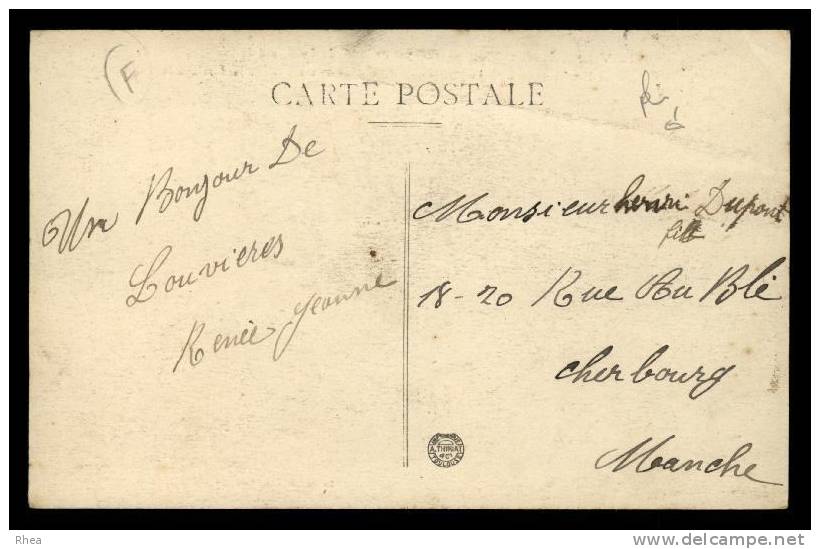 F
CARTE POSTALE
Un Bonjour De
Louvieres
Renée Jeanne
Monsieur henri Dupont
fils
18-20 Rue Au Blé
cherbourg
Manche
A. THIRIAT
TOULOUSE
Rhea
www.delcampe.net